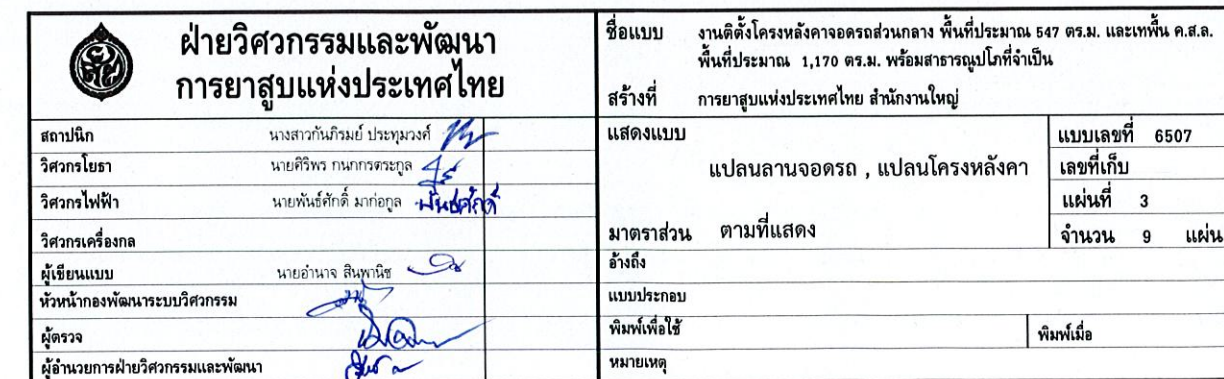 ฝ่ายวิศวกรรมและพัฒนา
การยาสูบแห่งประเทศไทย
สถาปนิก นางสาวกันภิรมย์ ประทุมวงศ์
วิศวกรโยธา นายศิริพร กนกกรตระกูล
วิศวกรไฟฟ้า นายพันธ์ศักดิ์ มาก่อกูล พันธ์ศักดิ์
วิศวกรเครื่องกล
ผู้เขียนแบบ นายอำนาจ สินพานิช
หัวหน้ากองพัฒนาระบบวิศวกรรม
ผู้ตรวจ
ผู้อำนวยการฝ่ายวิศวกรรมและพัฒนา
ชื่อแบบ งานติตั้งโครงหลังคาจอดรถส่วนกลาง พื้นที่ประมาณ 547 ตร.ม. และเทพื้น ค.ส.ล.
พื้นที่ประมาณ 1,170 ตร.ม. พร้อมสาธารณูปโภที่จำเป็น
สร้างที่ การยาสูบแห่งประเทศไทย สำนักงานใหญ่
แสดงแบบ
แปลนลานจอดรถ , แปลนโครงหลังคา
มาตราส่วน ตามที่แสดง
แบบเลขที่ 6507
เลขที่เก็บ
แผ่นที่ 3
จำนวน 9 แผ่น
อ้างถึง
แบบประกอบ
พิมพ์เพื่อใช้ พิมพ์เมื่อ
หมายเหตุ